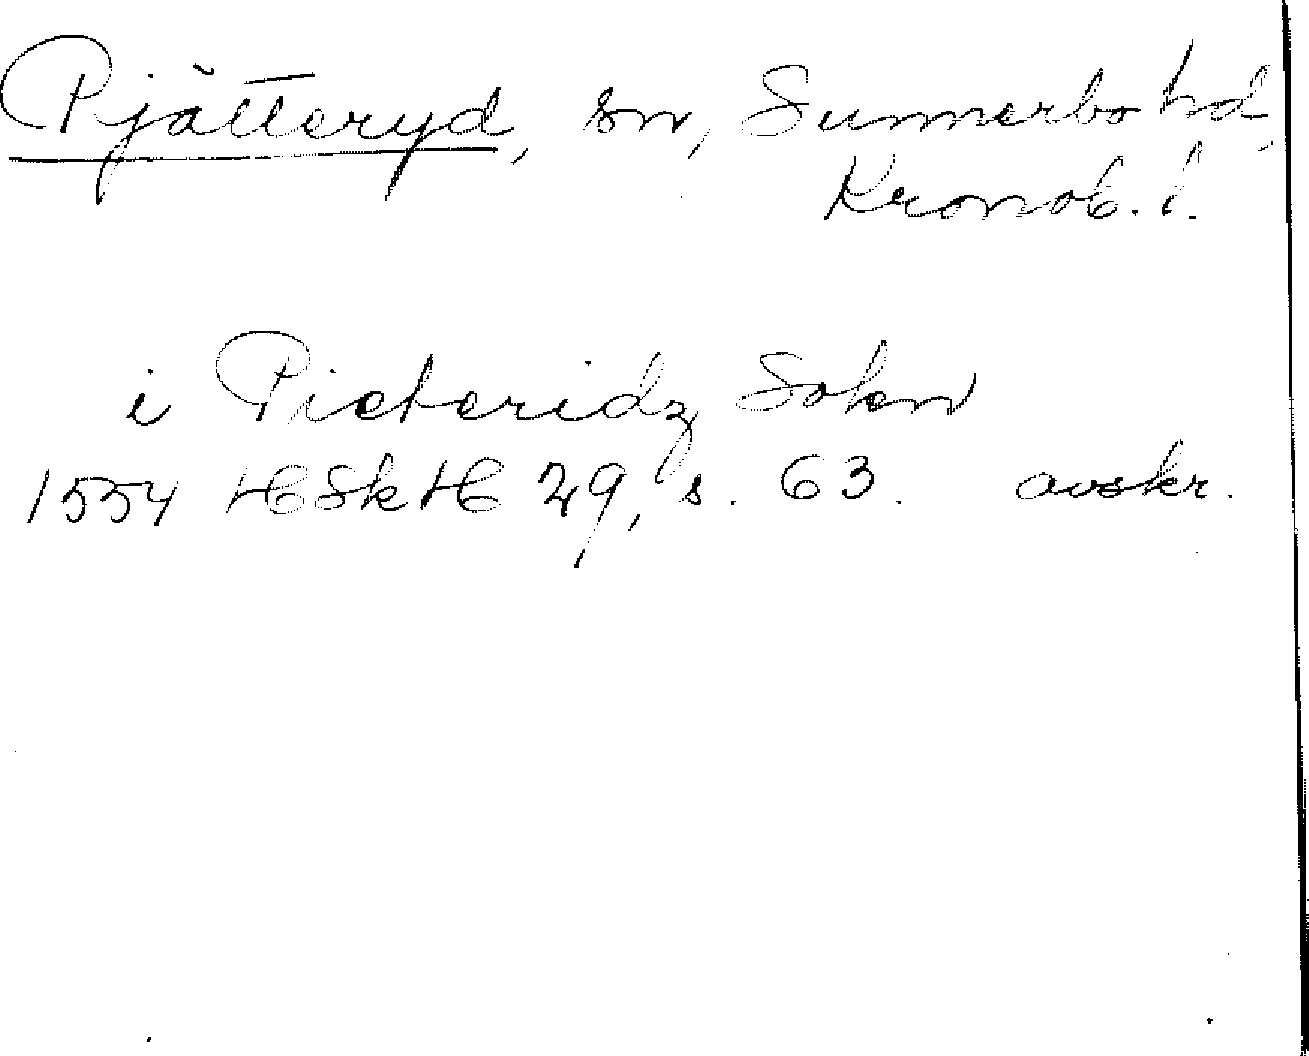 Pjätteryd, sn, Sunnerbo hd,
Kronob. l.
i Pieteridz Sokn
1554 HSkH 29, s. 63. avskr.